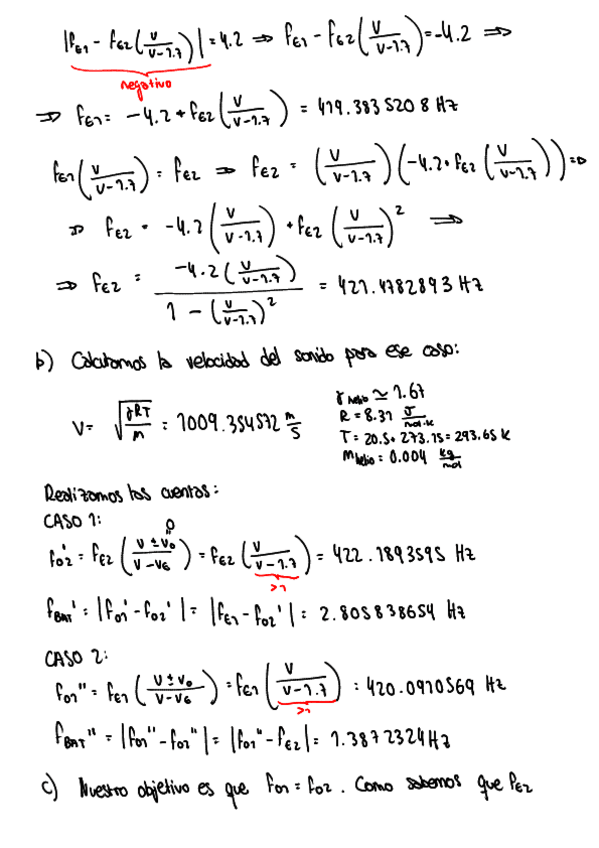 |f_E1 - f_E2 (v / v-1.7)| = 4.2 ⇒ f_E1 - f_E2 (v / v-1.7) = -4.2 ⇒
negativo
⇒ f_E1 = -4.2 + f_E2 (v / v-1.7) = 419.3835208 Hz
f_E1 (v / v-1.7) = f_E2 ⇒ f_E2 = (v / v-1.7) (-4.2 + f_E2 (v / v-1.7)) ⇒
⇒ f_E2 = -4.2 (v / v-1.7) + f_E2 (v / v-1.7)² ⇒
⇒ f_E2 = -4.2 (v / v-1.7) / 1 - (v / v-1.7)² = 421.4782893 Hz
b) Calculamos la velocidad del sonido para ese caso:
V = √(γRT / m) = 1009.354572 m/s
γ Helio ≃ 1.67
R = 8.31 J / mol·k
T = 20.5 + 273.15 = 293.65 k
M Helio = 0.004 kg / mol
Realizamos las cuentas:
CASO 1:
f_O2' = f_E2 (v ± v_o / v - v_E) = f_E2 (v / v-1.7) = 422.1893595 Hz
0
>1
f_BAT' = |f_O1' - f_O2'| = |f_E1 - f_O2'| = 2.805838654 Hz
CASO 2:
f_O1" = f_E1 (v ± v_o / v - v_E) = f_E1 (v / v-1.7) = 420.0910569 Hz
>1
f_BAT" = |f_O1" - f_O2"| = |f_O1" - f_E2| = 1.3872324 Hz
c) Nuestro objetivo es que f_O1 = f_O2. Como sabemos que f_E2